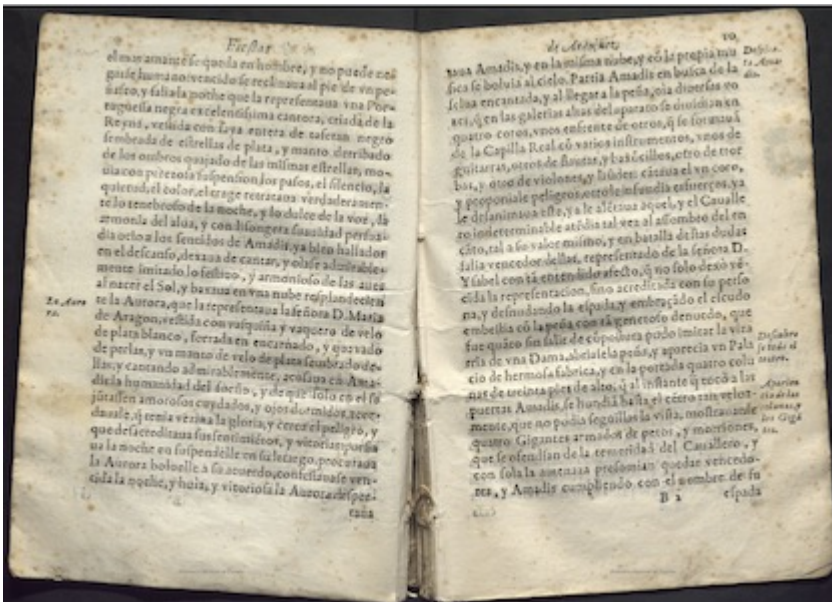 Fiestas
el mas amante se queda en hombre, y no puede ne-
garse humano: vencido se reclinaua al pie de vn pe-
ñasco, y salia la noche que la representaua vna Por-
tuguessa negra excelentissima cantora, criada de la
Reyna, vestida con saya entera de tafetan negro
sembrada de estrellas de plata, y manto derribado
de los ombros quajado de las mismas estrellas, mo-
uia con preciosa suspension los pasos, el silencio, la
quietud, el color, el trage retrataua verdaderamen-
te lo tenebroso de la noche, y lo dulce de la voz, la
armonia del alua, y con lisongera suauidad persua-
dia ocio a los sentidos de Amadis, ya bien hallador
en el descanso, dexaua de cantar, y oiase admirable-
mente imitado lo festiuo, y armonioso de las aues
al nacer el Sol, y baxaua en vna nube resplandecien
La Auro
ra.
te la Aurora, que la representaua la señora D. Maria
de Aragon, vestida con vasquiña y vaquero de velo
de plata blanco, forrada en encarnado, y quaxado
de perlas, y vn manto de velo de plata sembrado de
llas, y cantando admirablemente, acusaua en Ama-
dis la humanidad del sueño, y de que solo en el se
amorosos cuydados, y ojos dormidos, acor-
dauale, q̃ tenia vezina la gloria, y cerca el peligro, y
que desacreditaua sus sentimiẽtos, y vitorias, porfia
ua la noche en suspendelle en su letargo, procuraua
la Aurora boluelle a su acuerdo, confessauase ven-
cida la noche, y huia, y vitoriosa la Aurora desper-
taua
de Aranjuez,
10
taua Amadis, y en la misma nube, y cõ la propia mu
sica se boluia al cielo. Partia Amadis en busca de la
selua encantada, y al llegar a la peña, oia diversas vo
zes, q̃ en las galerias altas del aparato se diuidian en
quatro coros, vnos enfrente de otros, q̃ se formauã
de la Capilla Real cõ varios instrumentos, vnos de
guitarras, otros de flautas, y baxoncillos, otro de tior
bas, y otro de violones, y laúdes: cãtaua el vn coro,
y proponiale peligros, otro le infundia esfuerços, ya
le desanimaua este, ya le alẽtaua aquel, y el Caualle
ro indeterminable atẽdia tal vez al assombro del en
cãto, tal a su valor mismo, y en batalla destas dudas
salia vencedor dellas, representado de la señora D.
Ysabel con tã entendido afecto, q̃ no solo dexò vẽ-
cida la representacion, sino acreditada con su perso
na, y desnudando la espada, y embraçado el escudo
embestia cõ la peña, con tã generoso denuedo, que
fue quãto sin salir de cõpostura pudo imitar la vizar
ria de vna Dama, abriase la peña, y aparecia vn Pala
Descubre
se todo el
teatro.
cio de hermosa fabrica, y en la portada quatro colu
nas de treinta pies de alto, q̃ al instante q̃ tocò a las
Aparien
cia de las
colunas, y
los Gigã
tes.
puertas Amadis, se hundiã hasta el cẽtro tan veloz-
mente, que no podia seguillas la vista, mostrandose
quatro Gigantes armados de petos, y morriones,
que se ofendian de la temeridad del Cauallero, y
con sola la amenaza presumian quedar vencedo-
res, y Amadis cumpliendo con el nombre de su
B 2
espada